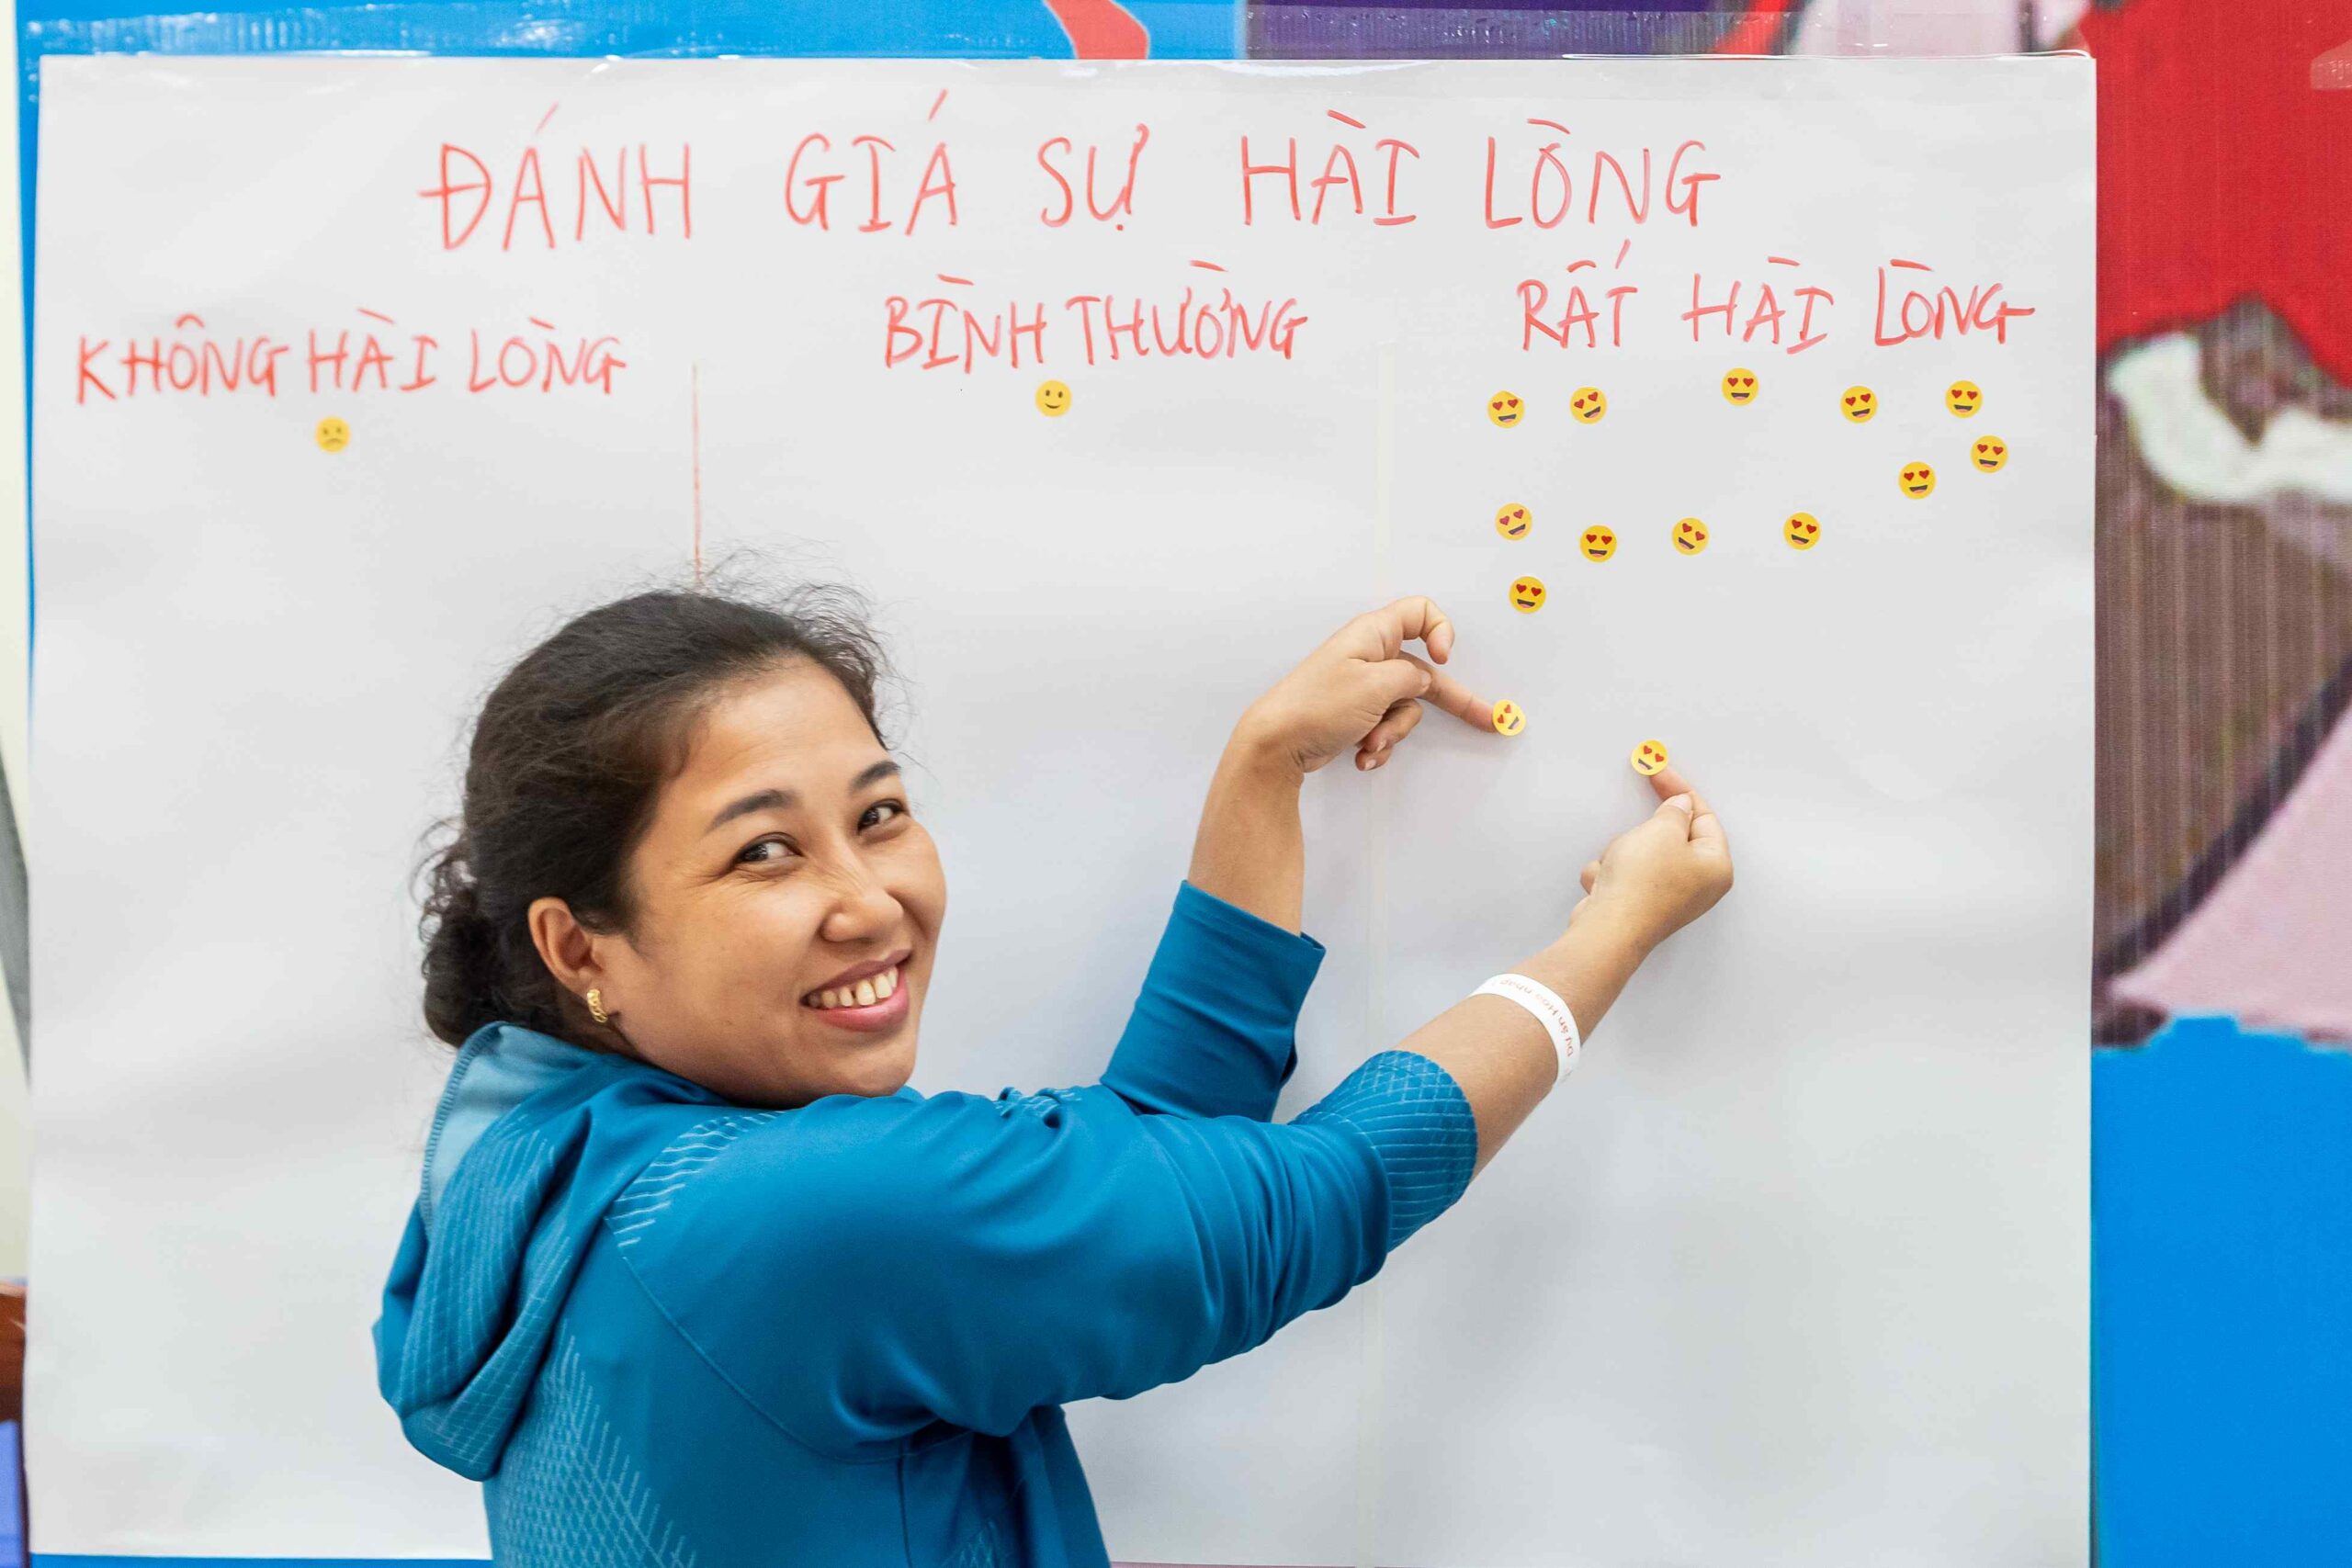 ĐÁNH GIÁ SỰ HÀI LÒNG
KHÔNG HÀI LÒNG
BÌNH THƯỜNG
RẤT HÀI LÒNG
Dự án Hòa nhập